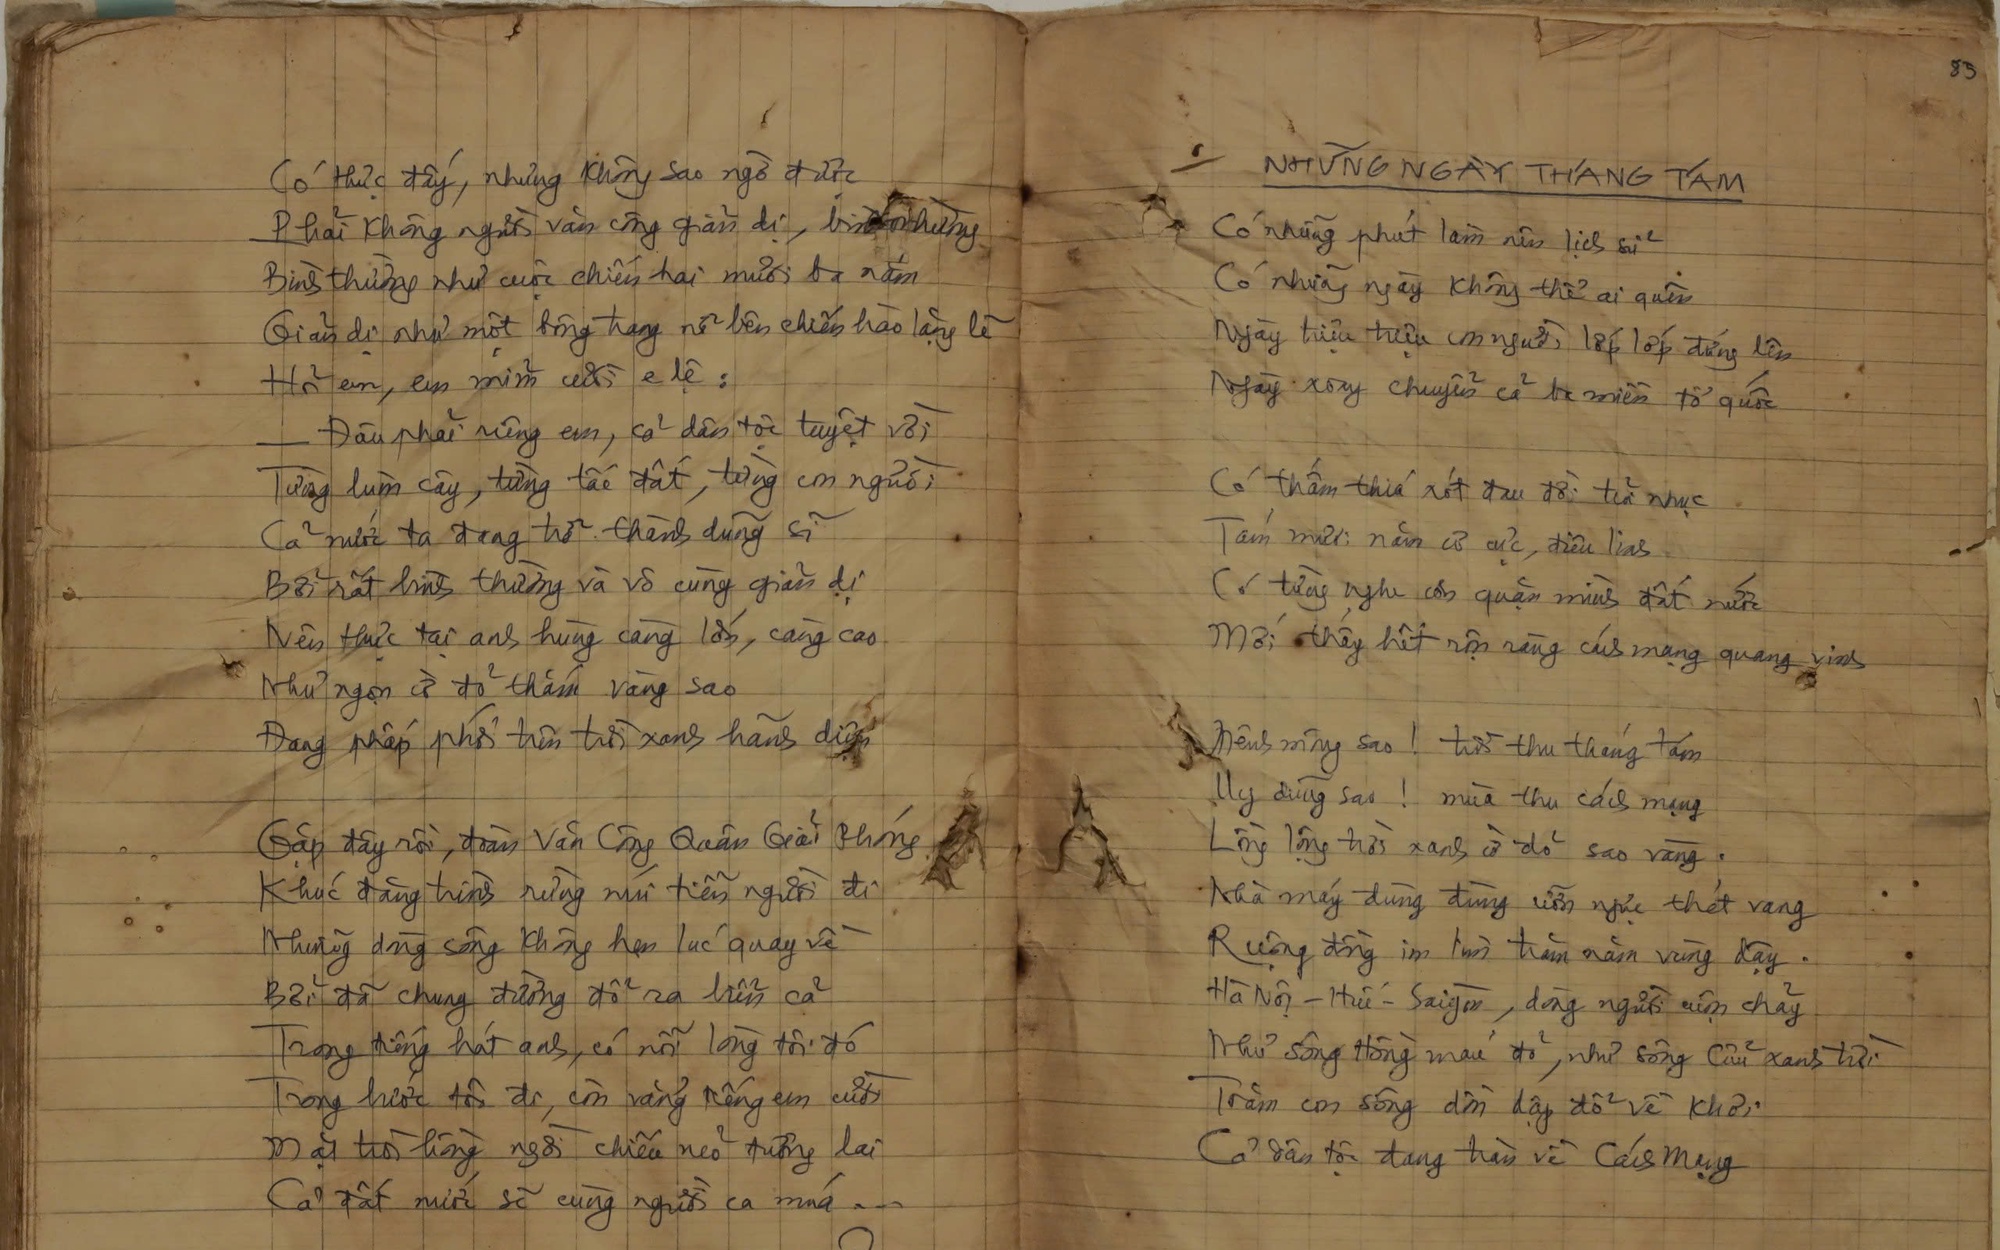 Có thực đấy, nhưng không sao ngờ được
Phải không người văn công giản dị, bình thường
Bình thường như cuộc chiến hai mươi ba năm
Giản dị như một bông trang nở bên chiến hào lặng lẽ
Hỏi em, em mỉm cười e lệ :
— Đâu phải riêng em, cả dân tộc tuyệt vời
Từng lùm cây, từng tấc đất, từng con người
Cả nước ta đang trở thành dũng sĩ
Bởi rất bình thường và vô cùng giản dị
Nên thực tại anh hùng càng lớn, càng cao
Như ngọn cờ đỏ thắm vàng sao
Đang phấp phới trên trời xanh hãnh diện
Gặp đây rồi, đoàn Văn Công Quân Giải Phóng
Khúc đăng trình rừng núi tiễn người đi
Những dòng sông không hẹn lúc quay về
Bởi đã chung đường đổ ra biển cả
Trong tiếng hát anh, có nỗi lòng tôi đó
Trong bước tôi đi, còn vẳng tiếng em cười
Mặt trời hồng ngời chiếu nẻo tương lai
Cả đất nước sẽ cùng người ca múa ...
83
NHỮNG NGÀY THÁNG TÁM
Có những phút làm nên lịch sử
Có những ngày không thể ai quên
Ngày triệu triệu con người lớp lớp đứng lên
Ngày xoay chuyển cả ba miền tổ quốc
Có thấm thía xót đau đời tủi nhục
Tám mươi năm cơ cực, điêu linh
Có từng nghe còn quặn mình đất nước
Mới thấy hết rộn ràng cách mạng quang vinh
Mênh mông sao ! trời thu tháng tám
Uy dũng sao ! mùa thu cách mạng
Lồng lộng trời xanh cờ đỏ sao vàng.
Nhà máy đùng đùng ưỡn ngực thét vang
Ruộng đồng im lìm trăm năm vùng dậy.
Hà Nội - Huế - Saigòn, dòng người cuộn chảy
Như sông Hồng máu đỏ, như sông Cửu xanh trời
Trăm con sông dồn dập đổ về khơi
Cả dân tộc đang tràn về Cách Mạng